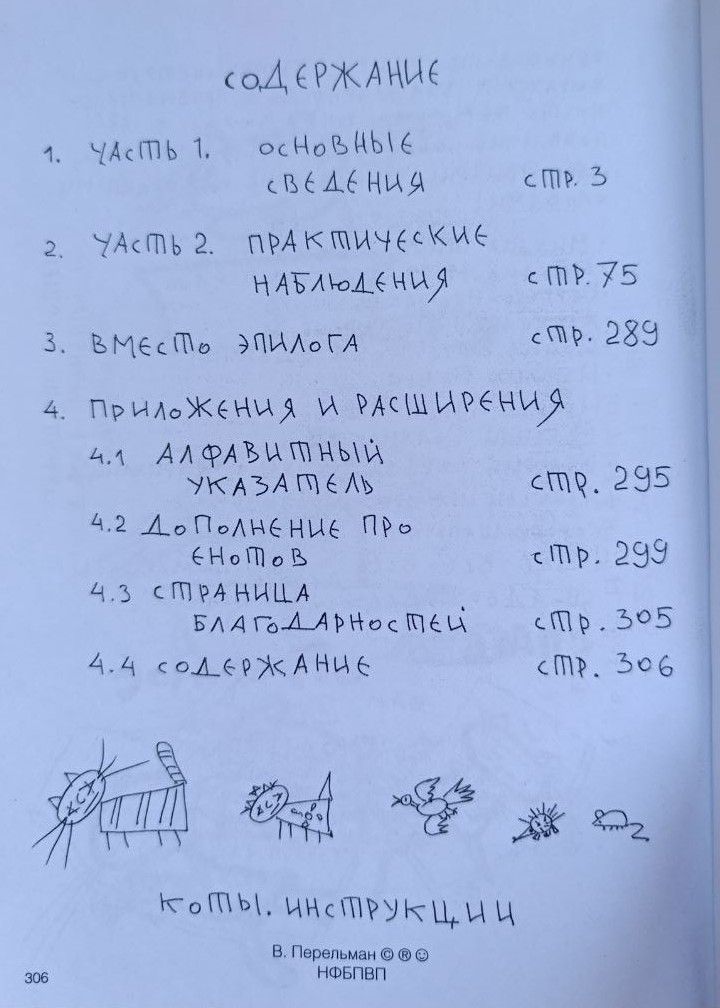 СОДЕРЖАНИЕ
1. ЧАСТЬ 1. ОСНОВНЫЕ
СВЕДЕНИЯ СТР. 3
2. ЧАСТЬ 2. ПРАКТИЧЕСКИЕ
НАБЛЮДЕНИЯ СТР. 75
3. ВМЕСТО ЭПИЛОГА СТР. 289
4. ПРИЛОЖЕНИЯ И РАСШИРЕНИЯ
4.1 АЛФАВИТНЫЙ
УКАЗАТЕЛЬ СТР. 295
4.2 ДОПОЛНЕНИЕ ПРО
ЕНОТОВ СТР. 299
4.3 СТРАНИЦА
БЛАГОДАРНОСТЕЙ СТР. 305
4.4 СОДЕРЖАНИЕ СТР. 306
КОТЫ. ИНСТРУКЦИИ
В. Перельман © ® ☺
НФБПВП
306